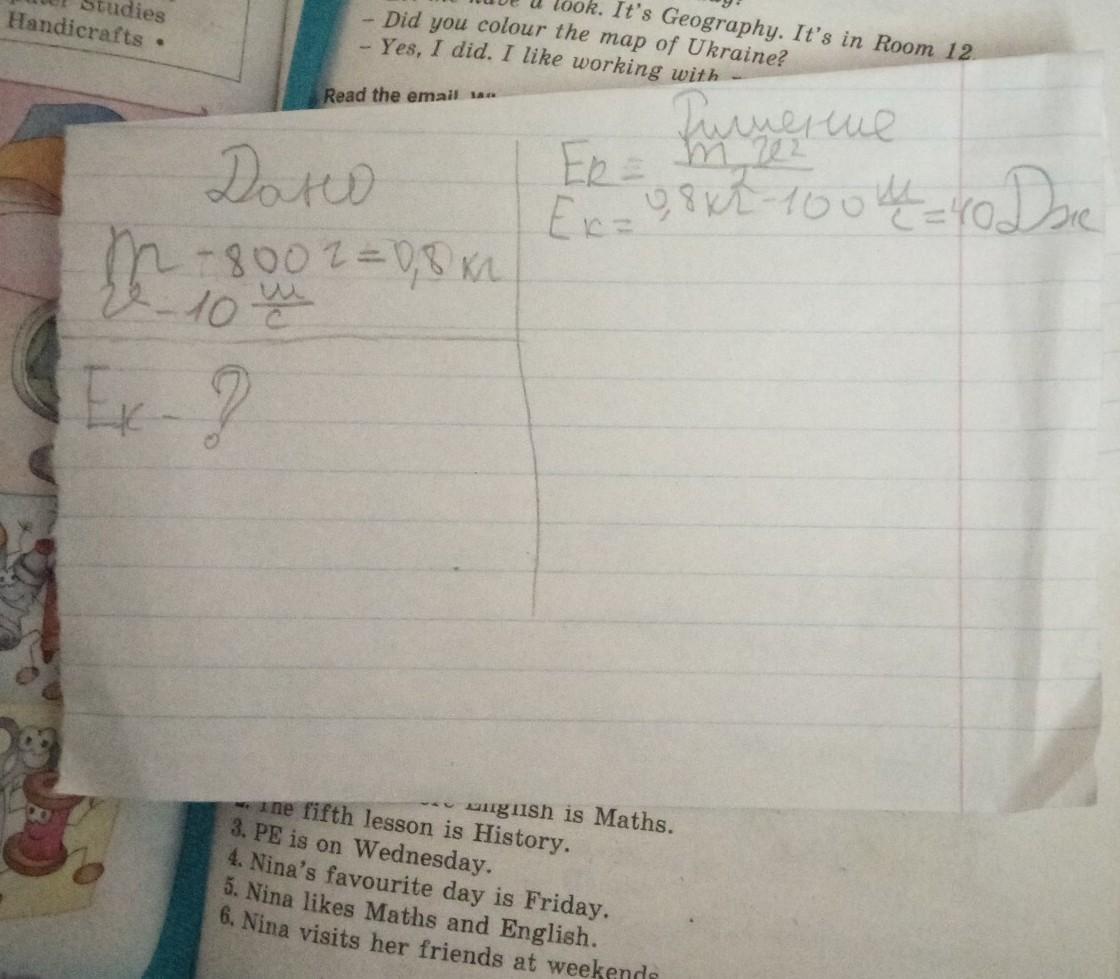 Studies
Handicrafts •
a look. It's Geography. It's in Room 12.
– Did you colour the map of Ukraine?
– Yes, I did. I like working with
Read the email.
Дано
m - 800 г = 0,8 кг
v - 10 м/с
Eк - ?
Решение
Eк = mv²/2
Eк = 0,8 кг - 100 м/с = 40 Дж
English is Maths.
2. The fifth lesson is History.
3. PE is on Wednesday.
4. Nina's favourite day is Friday.
5. Nina likes Maths and English.
6. Nina visits her friends at weekends